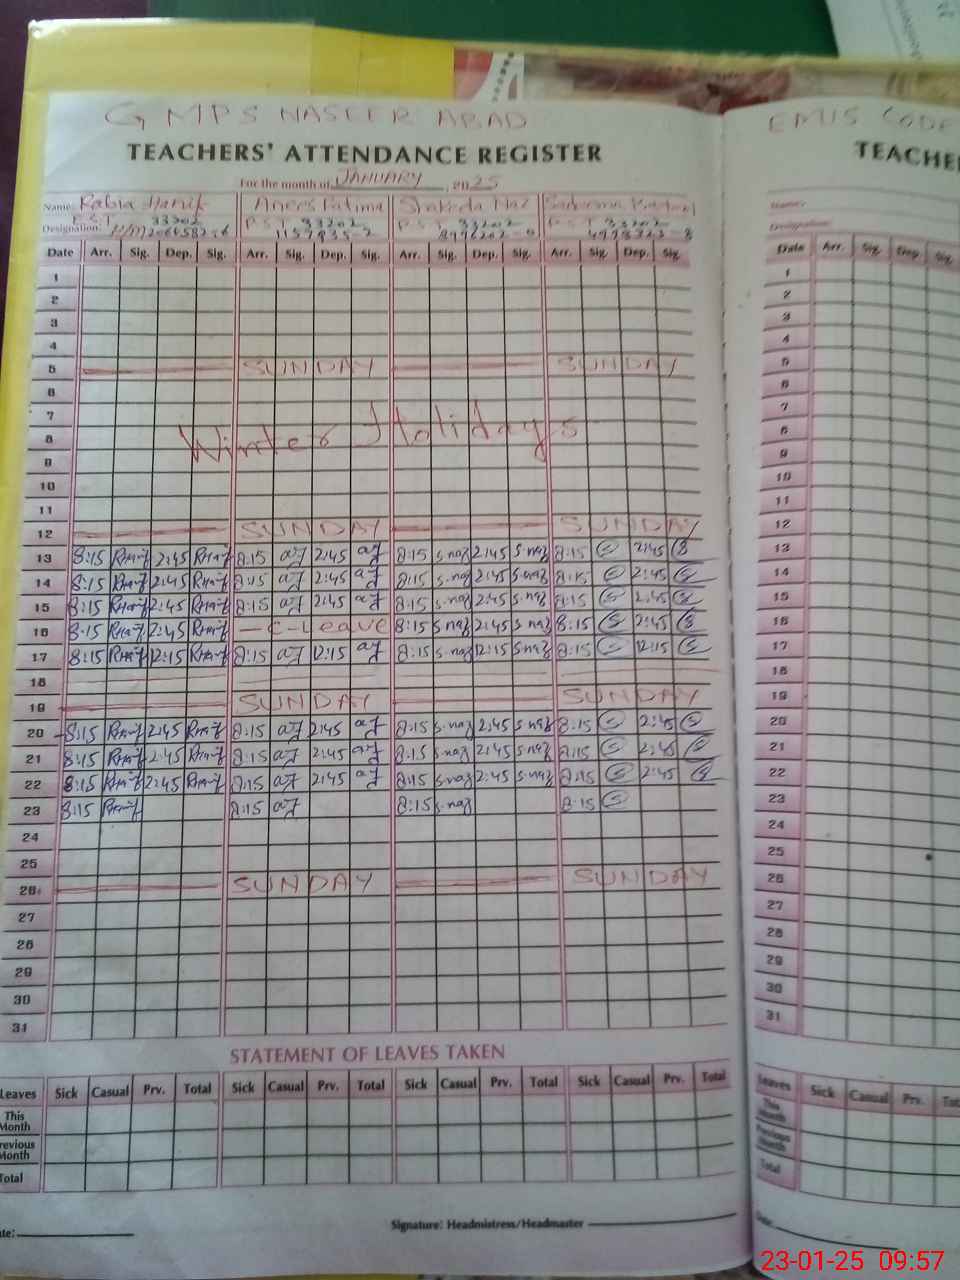 G MPS NASEER ABAD
EMIS CODE
TEACHERS' ATTENDANCE REGISTER
TEACHE
For the month of JANUARY, 2025
Name: Rabia Hanif Anees Fatima Shakeela Naz
Name:
Designation: P.S.T 33202 P.S.T 33202 P.S.T 33202 P.S.T 33202
Designation:
Date Arr. Sig. Dep. Sig. Arr. Sig. Dep. Sig. Arr. Sig. Dep. Sig. Arr. Sig. Dep. Sig.
Date Arr. Sig. Dep. Sig.
1
2
3
4
5 SUNDAY SUNDAY
6
7
8 Winter Holidays
9
10
11
12 SUNDAY SUNDAY
13 8:15 2:45 8:15 aj 2:45 aj 8:15 s.naz 2:45 s.naz 8:15 S 2:45 S
14 8:15 2:45 8:15 aj 2:45 aj 8:15 s.naz 2:45 s.naz 8:15 S 2:45 S
15 8:15 2:45 8:15 aj 2:45 aj 8:15 s.naz 2:45 s.naz 8:15 S 2:45 S
16 8:15 2:45 - C-Leave 8:15 s.naz 2:45 s.naz 8:15 S 2:45 S
17 8:15 12:15 8:15 aj 12:15 aj 8:15 s.naz 12:15 s.naz 8:15 S 12:15 S
18
19 SUNDAY SUNDAY
20 8:15 2:45 8:15 aj 2:45 aj 8:15 s.naz 2:45 s.naz 8:15 S 2:45 S
21 8:15 2:45 8:15 aj 2:45 aj 8:15 s.naz 2:45 s.naz 8:15 S 2:45 S
22 8:15 2:45 8:15 aj 2:45 aj 8:15 s.naz 2:45 s.naz 8:15 S 2:45 S
23 8:15 8:15 aj 8:15 s.naz 8:15 S
24
25
26 SUNDAY SUNDAY
27
28
29
30
31
1
2
3
4
5
6
7
8
9
10
11
12
13
14
15
16
17
18
19
20
21
22
23
24
25
26
27
28
29
30
31
STATEMENT OF LEAVES TAKEN
Leaves Sick Casual Prv. Total Sick Casual Prv. Total Sick Casual Prv. Total Sick Casual Prv. Total
This Month
revious Month
Total
Leaves Sick Casual Prv. Tot
This Month
Previous Month
Total
ate:
Signature: Headmistress/Headmaster
Date:
23-01-25 09:57